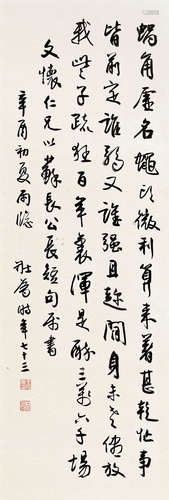 蝸角虛名蠅頭微利算來著甚乾忙事
皆前定誰弱又誰強且趁閒身未老儘放
我些子疏狂百年裏渾是醉三萬六千場
文懷仁兄以蘇長公長短句屬書
辛酉初夏雨窗
時年七十三